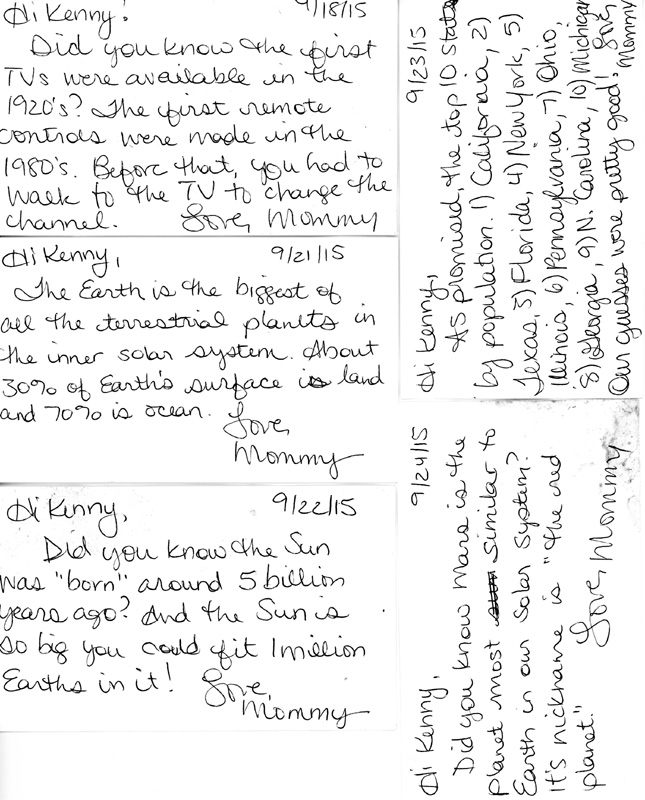 Hi Kenny! 9/18/15
Did you know the first
TVs were available in the
1920's? The first remote
controls were made in the
1980's. Before that, you had to
walk to the TV to change the
channel. Love, Mommy
Hi Kenny, 9/21/15
The Earth is the biggest of
all the terrestrial planets in
the inner solar system. About
30% of Earth's surface is land
and 70% is ocean. Love,
Mommy
Hi Kenny, 9/22/15
Did you know the Sun
was "born" around 5 billion
years ago? And the Sun is
so big you could fit 1 million
Earths in it! Love,
Mommy
Hi Kenny, 9/23/15
As promised, the top 10 states
by population. 1) California, 2)
Texas, 3) Florida, 4) New York, 5)
Illinois, 6) Pennsylvania, 7) Ohio,
8) Georgia, 9) N. Carolina, 10) Michigan
Our guesses were pretty good! Love,
Mommy
Hi Kenny, 9/24/15
Did you know Mars is the
planet most similar to
Earth in our Solar System?
It's nickname is "the red
planet."
Love, Mommy